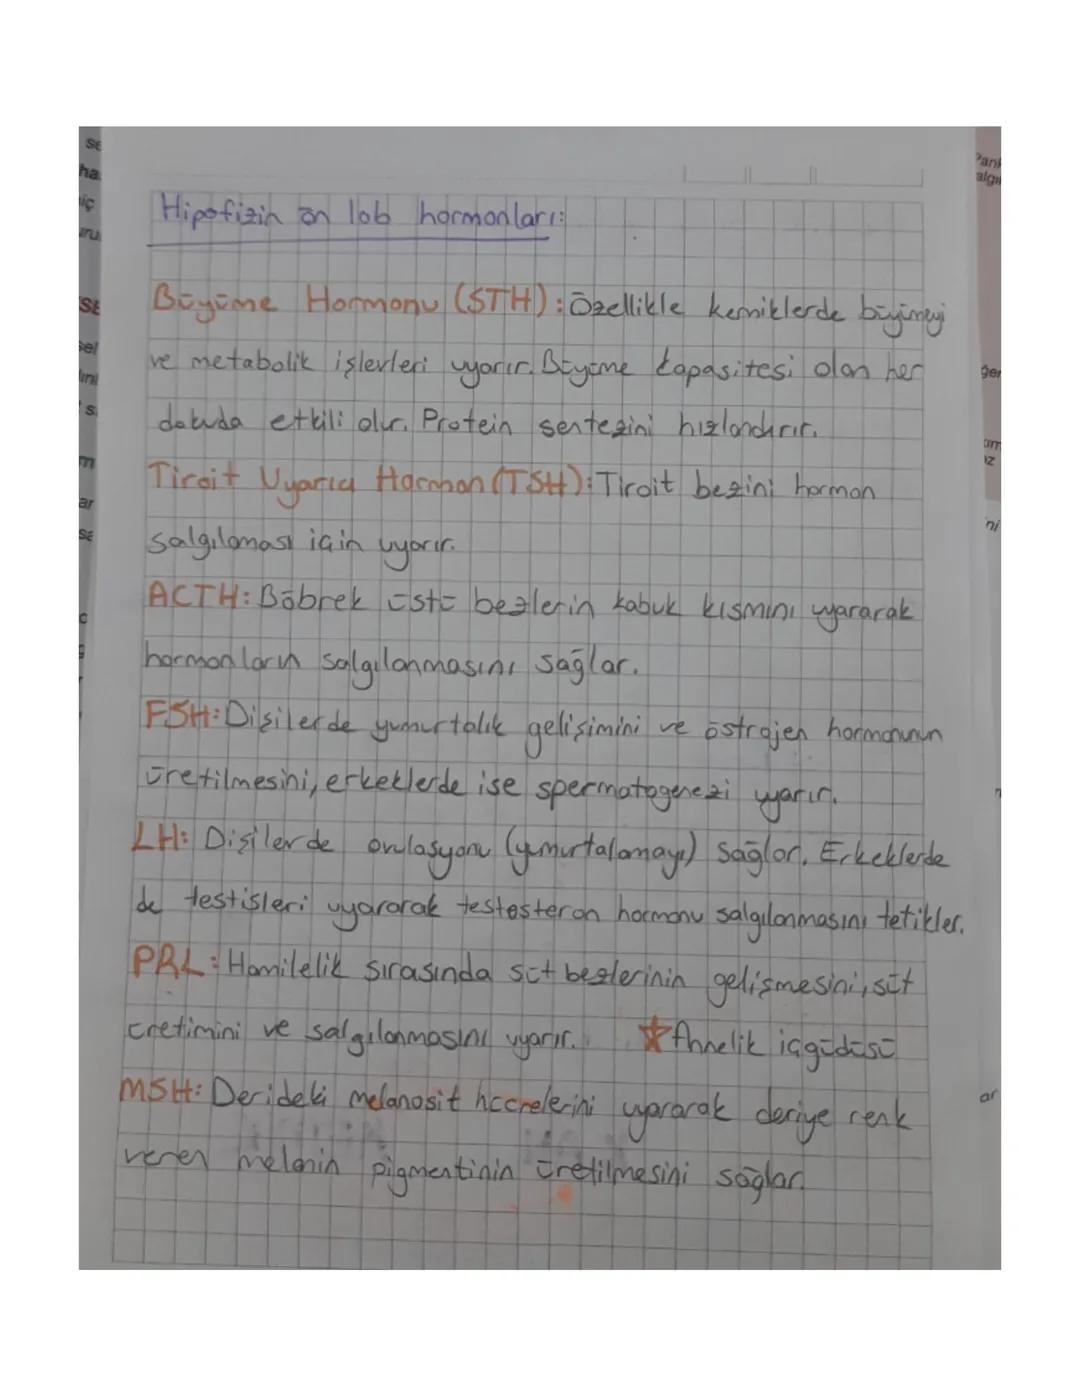 Hipofizin ön lob hormonları:
Büyüme Hormonu (STH): Özellikle kemiklerde büyümeyi
ve metabolik işlevleri uyarır. Büyüme kapasitesi olan her
dokuda etkili olur. Protein sentezini hızlandırır.
Tiroit Uyarıcı Hormon (TSH): Tiroit bezini hormon
salgılaması için uyarır.
ACTH: Böbrek üstü bezlerin kabuk kısmını uyararak
hormonların salgılanmasını sağlar.
FSH: Dişilerde yumurtalık gelişimini ve östrojen hormonunun
üretilmesini, erkeklerde ise spermatogenezi uyarır.
LH: Dişilerde ovulasyonu (yumurtalamayı) sağlar. Erkeklerde
de testisleri uyararak testesteron hormonu salgılanmasını tetikler.
PRL: Hamilelik sırasında süt bezlerinin gelişmesini, süt
üretimini ve salgılanmasını uyarır. ☆Annelik içgüdüsü
MSH: Derideki melanosit hücrelerini uyararak deriye renk
veren melanin pigmentinin üretilmesini sağlar.